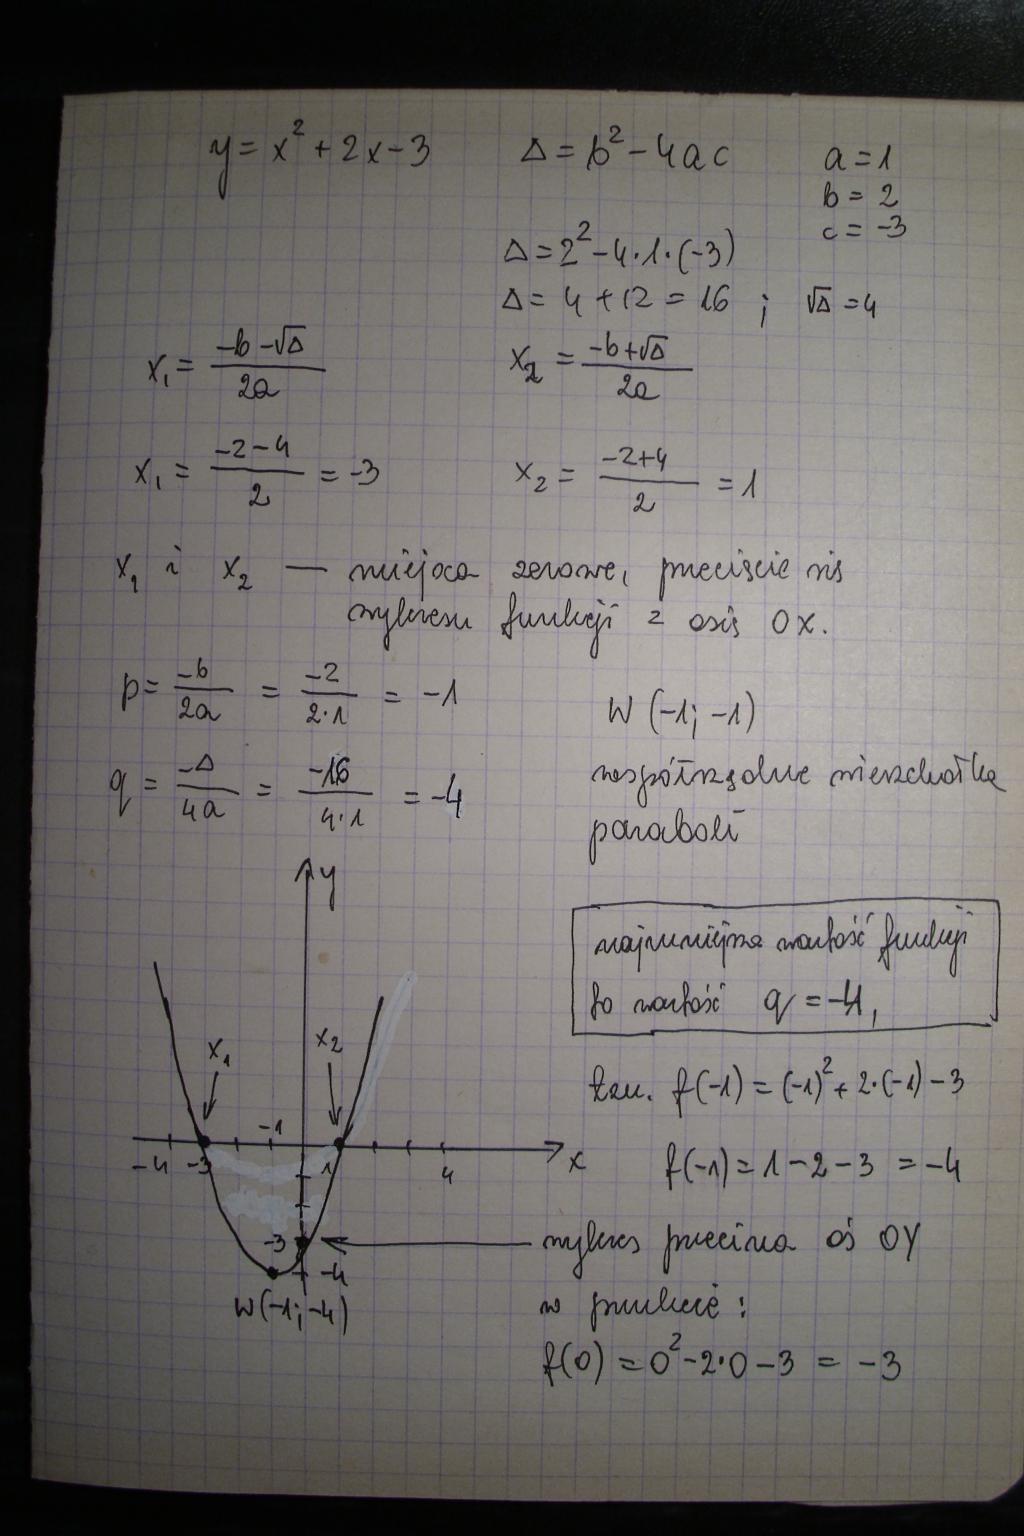 y = x² + 2x - 3    Δ = b² - 4ac    a = 1
b = 2
c = -3
Δ = 2² - 4·1·(-3)
Δ = 4 + 12 = 16 ; √Δ = 4
x₁ = (-b - √Δ)/2a    x₂ = (-b + √Δ)/2a
x₁ = (-2 - 4)/2 = -3    x₂ = (-2 + 4)/2 = 1
x₁ i x₂ — miejsca zerowe, przecięcie się
wykresu funkcji z osią OX.
p = -b/2a = -2/2·1 = -1    W (-1; -1)
q = -Δ/4a = -16/4·1 = -4    współrzędne wierzchołka
paraboli
y
najmniejsza wartość funkcji
to wartość q = -4,
x₁    x₂
tzn. f(-1) = (-1)² + 2·(-1) - 3
-4 -3 -1 1 4 x
f(-1) = 1 - 2 - 3 = -4
-3    wykres przecina oś OY
-4
W(-1; -4)    w punkcie :
f(0) = 0² - 2·0 - 3 = -3